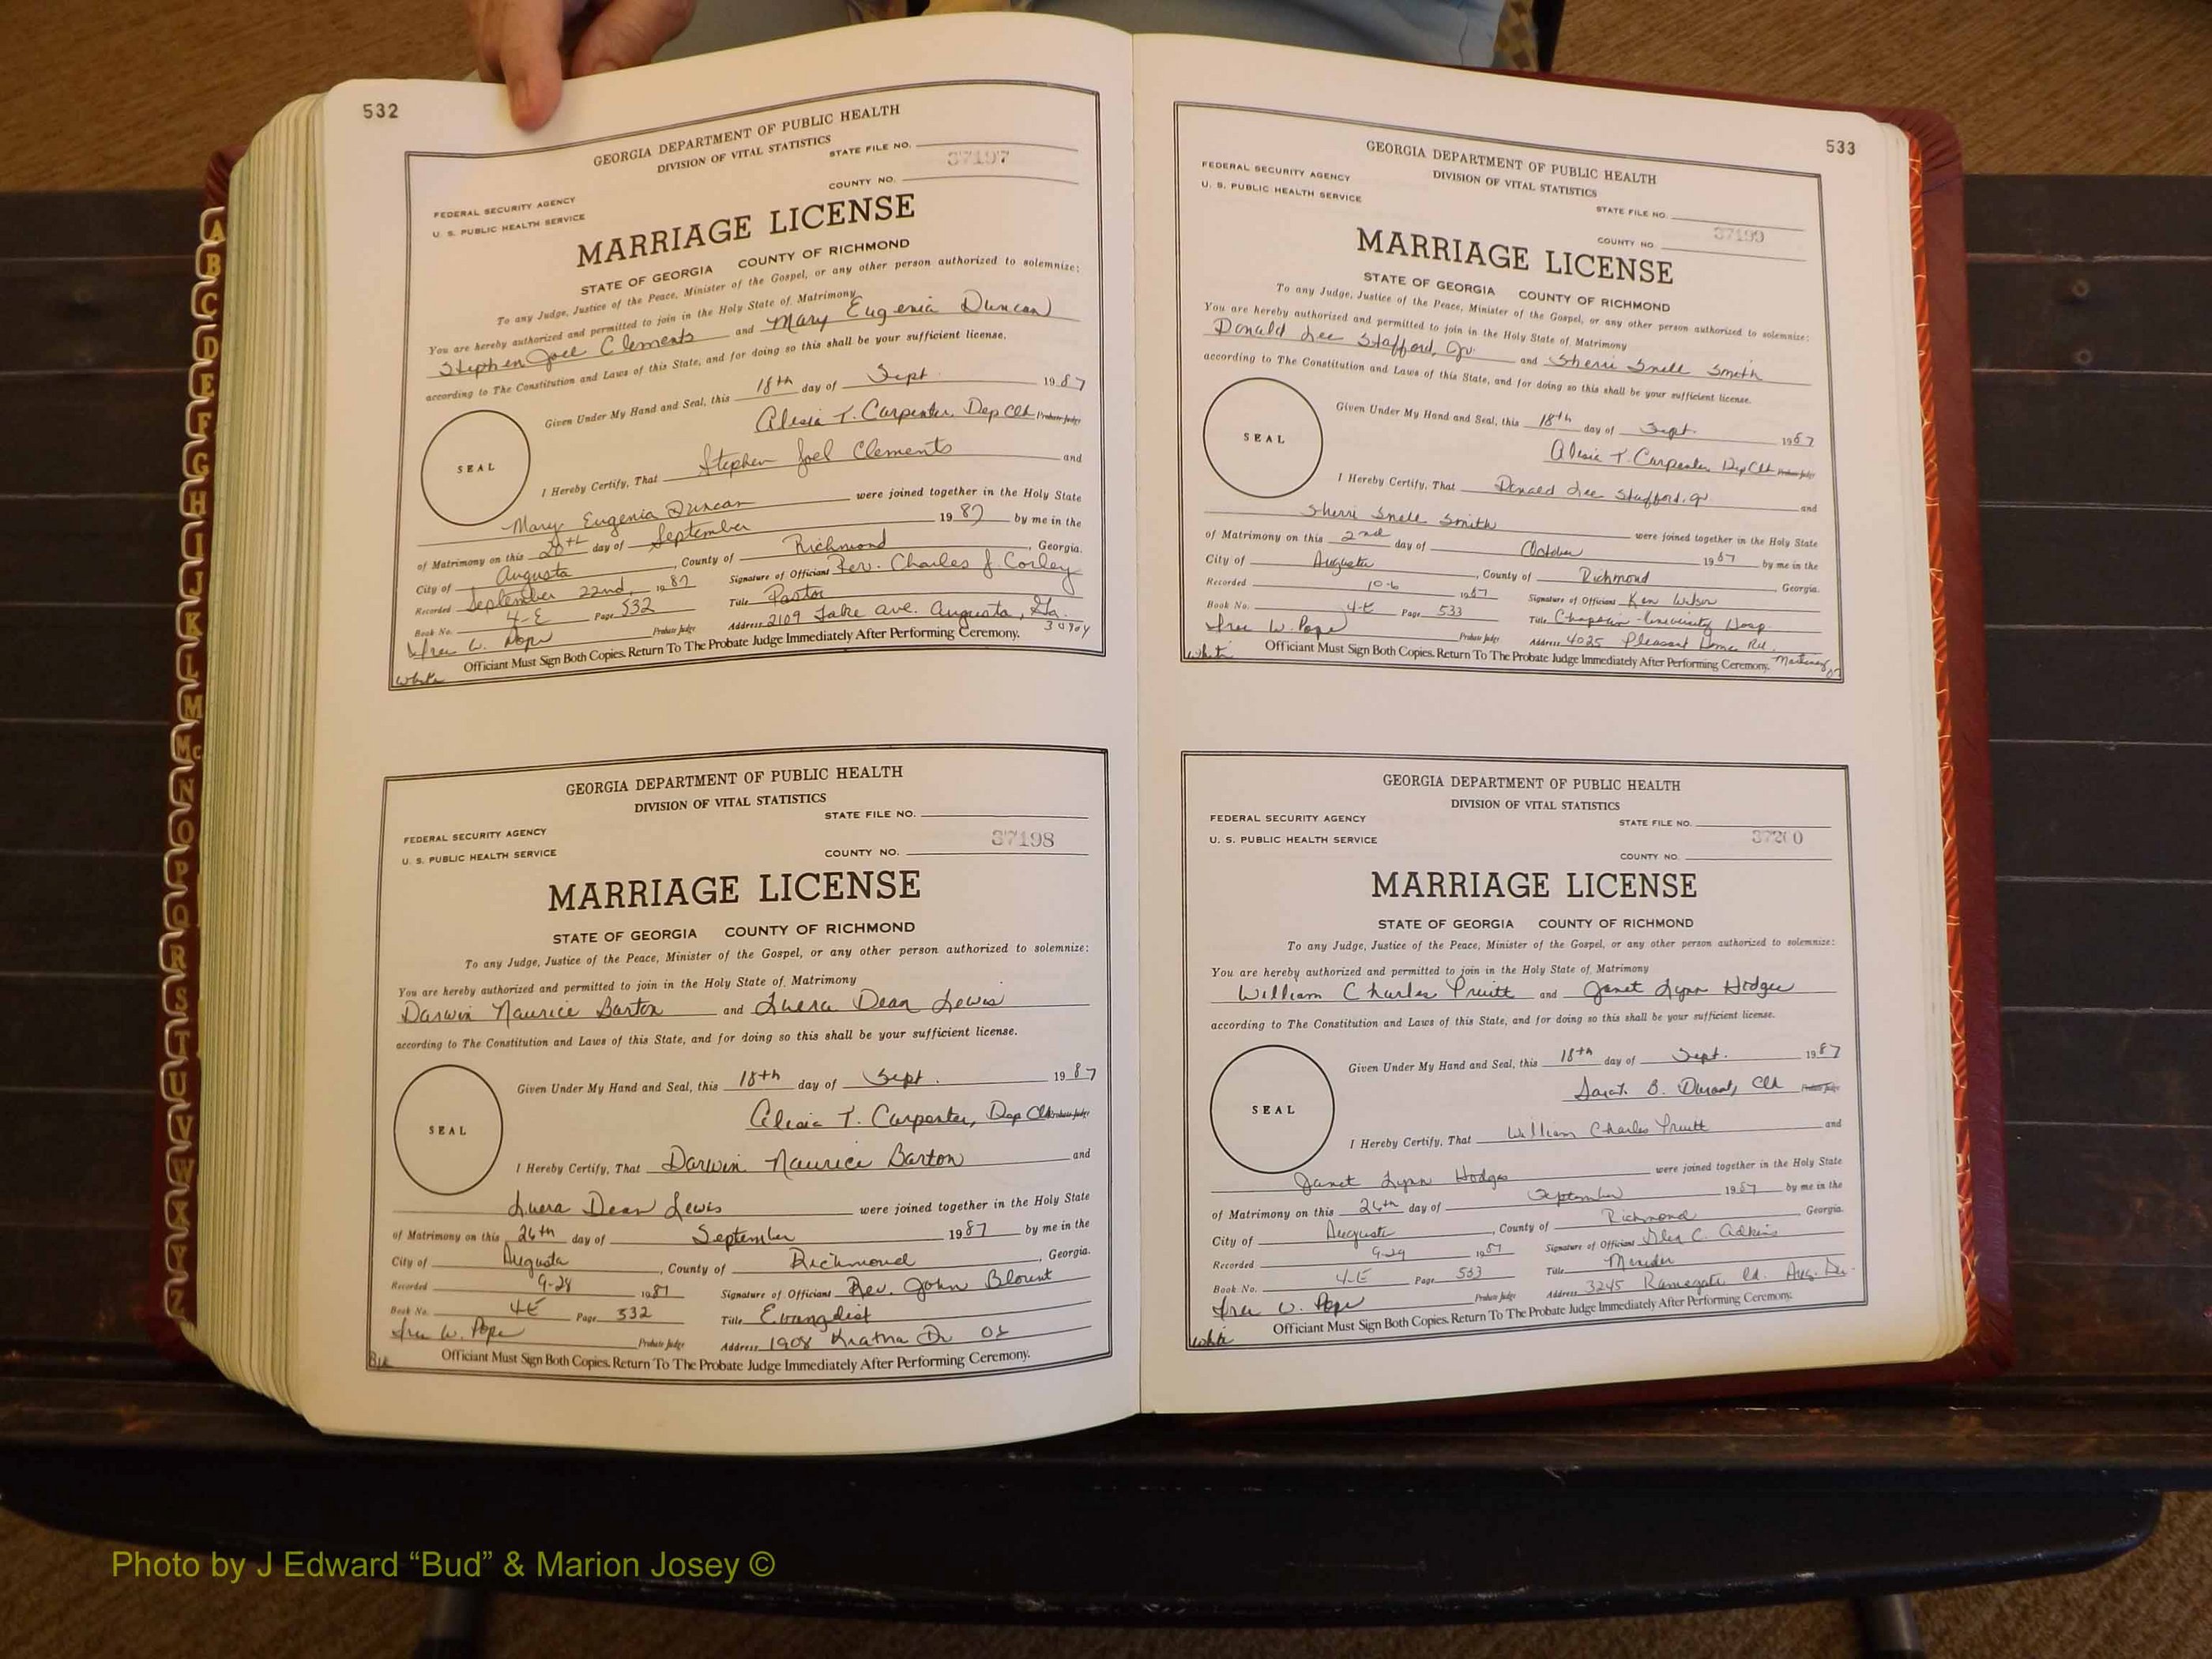 532
GEORGIA DEPARTMENT OF PUBLIC HEALTH
DIVISION OF VITAL STATISTICS
STATE FILE NO.
37197
FEDERAL SECURITY AGENCY
U. S. PUBLIC HEALTH SERVICE
COUNTY NO.
MARRIAGE LICENSE
STATE OF GEORGIA COUNTY OF RICHMOND
To any Judge, Justice of the Peace, Minister of the Gospel, or any other person authorized to solemnize:
You are hereby authorized and permitted to join in the Holy State of Matrimony
Stephen Joel Clements and Mary Eugenia Duncan
according to The Constitution and Laws of this State, and for doing so this shall be your sufficient license.
Given Under My Hand and Seal, this 18th day of Sept. 1987
Alesia T. Carpenter, Dep Clk Probate Judge
SEAL
I Hereby Certify, That Stephen Joel Clements and
Mary Eugenia Duncan were joined together in the Holy State
of Matrimony on this 20th day of September 1987 by me in the
City of Augusta, County of Richmond, Georgia.
Recorded September 22nd, 1987 Signature of Officiant Rev. Charles J. Corley
Book No. 4-E Page 532 Title Pastor
W. Pope Probate Judge Address 2109 Lake ave. Augusta, Ga. 30904
Officiant Must Sign Both Copies. Return To The Probate Judge Immediately After Performing Ceremony.
White
GEORGIA DEPARTMENT OF PUBLIC HEALTH
DIVISION OF VITAL STATISTICS
STATE FILE NO.
FEDERAL SECURITY AGENCY
37198
U. S. PUBLIC HEALTH SERVICE
COUNTY NO.
MARRIAGE LICENSE
STATE OF GEORGIA COUNTY OF RICHMOND
To any Judge, Justice of the Peace, Minister of the Gospel, or any other person authorized to solemnize:
You are hereby authorized and permitted to join in the Holy State of Matrimony
Darwin Naurice Barton and Luera Dean Lewis
according to The Constitution and Laws of this State, and for doing so this shall be your sufficient license.
Given Under My Hand and Seal, this 18th day of Sept. 1987
Alesia T. Carpenter, Dep Clk Probate Judge
SEAL
I Hereby Certify, That Darwin Naurice Barton and
Luera Dean Lewis were joined together in the Holy State
of Matrimony on this 26th day of September 1987 by me in the
City of Augusta, County of Richmond, Georgia.
Recorded 9-28 1987 Signature of Officiant Rev. John Blount
Book No. 4-E Page 532 Title Evangelist
W. Pope Probate Judge Address 1908 Dr
Officiant Must Sign Both Copies. Return To The Probate Judge Immediately After Performing Ceremony.
533
GEORGIA DEPARTMENT OF PUBLIC HEALTH
DIVISION OF VITAL STATISTICS
FEDERAL SECURITY AGENCY
U. S. PUBLIC HEALTH SERVICE
STATE FILE NO.
37199
COUNTY NO.
MARRIAGE LICENSE
STATE OF GEORGIA COUNTY OF RICHMOND
To any Judge, Justice of the Peace, Minister of the Gospel, or any other person authorized to solemnize:
You are hereby authorized and permitted to join in the Holy State of Matrimony
Donald Lee Stafford, Jr. and Sherri Snell Smith
according to The Constitution and Laws of this State, and for doing so this shall be your sufficient license.
Given Under My Hand and Seal, this 18th day of Sept. 1987
Alesia T. Carpenter, Dep Clk Probate Judge
SEAL
I Hereby Certify, That Donald Lee Stafford, Jr and
Sherri Snell Smith were joined together in the Holy State
of Matrimony on this 2nd day of October 1987 by me in the
City of Augusta, County of Richmond, Georgia.
Recorded 10-6 1987 Signature of Officiant Ken Wilson
Book No. 4-E Page 533 Title University Hosp.
W. Pope Probate Judge Address 4025 Pleasant Home Rd.
Officiant Must Sign Both Copies. Return To The Probate Judge Immediately After Performing Ceremony.
White
GEORGIA DEPARTMENT OF PUBLIC HEALTH
DIVISION OF VITAL STATISTICS
FEDERAL SECURITY AGENCY
STATE FILE NO.
U. S. PUBLIC HEALTH SERVICE
37200
COUNTY NO.
MARRIAGE LICENSE
STATE OF GEORGIA COUNTY OF RICHMOND
To any Judge, Justice of the Peace, Minister of the Gospel, or any other person authorized to solemnize:
You are hereby authorized and permitted to join in the Holy State of Matrimony
William Charles Pruitt and Janet Lynn Hodges
according to The Constitution and Laws of this State, and for doing so this shall be your sufficient license.
Given Under My Hand and Seal, this 18th day of Sept. 1987
Sarah B. Durant, Clk Probate Judge
SEAL
I Hereby Certify, That William Charles Pruitt and
Janet Lynn Hodges were joined together in the Holy State
of Matrimony on this 26th day of September 1987 by me in the
City of Augusta, County of Richmond, Georgia.
Recorded 9-29 1987 Signature of Officiant C. Adkins
Book No. 4-E Page 533 Title
W. Pope Probate Judge Address 3245 Ramsgate Rd. Aug. Ga.
Officiant Must Sign Both Copies. Return To The Probate Judge Immediately After Performing Ceremony.
White
A
B
C
D
E
F
G
H
I
J
K
L
M
Mc
N
O
P
Q
R
S
T
U
V
W
X
Y
Z
Photo by J Edward “Bud” & Marion Josey ©